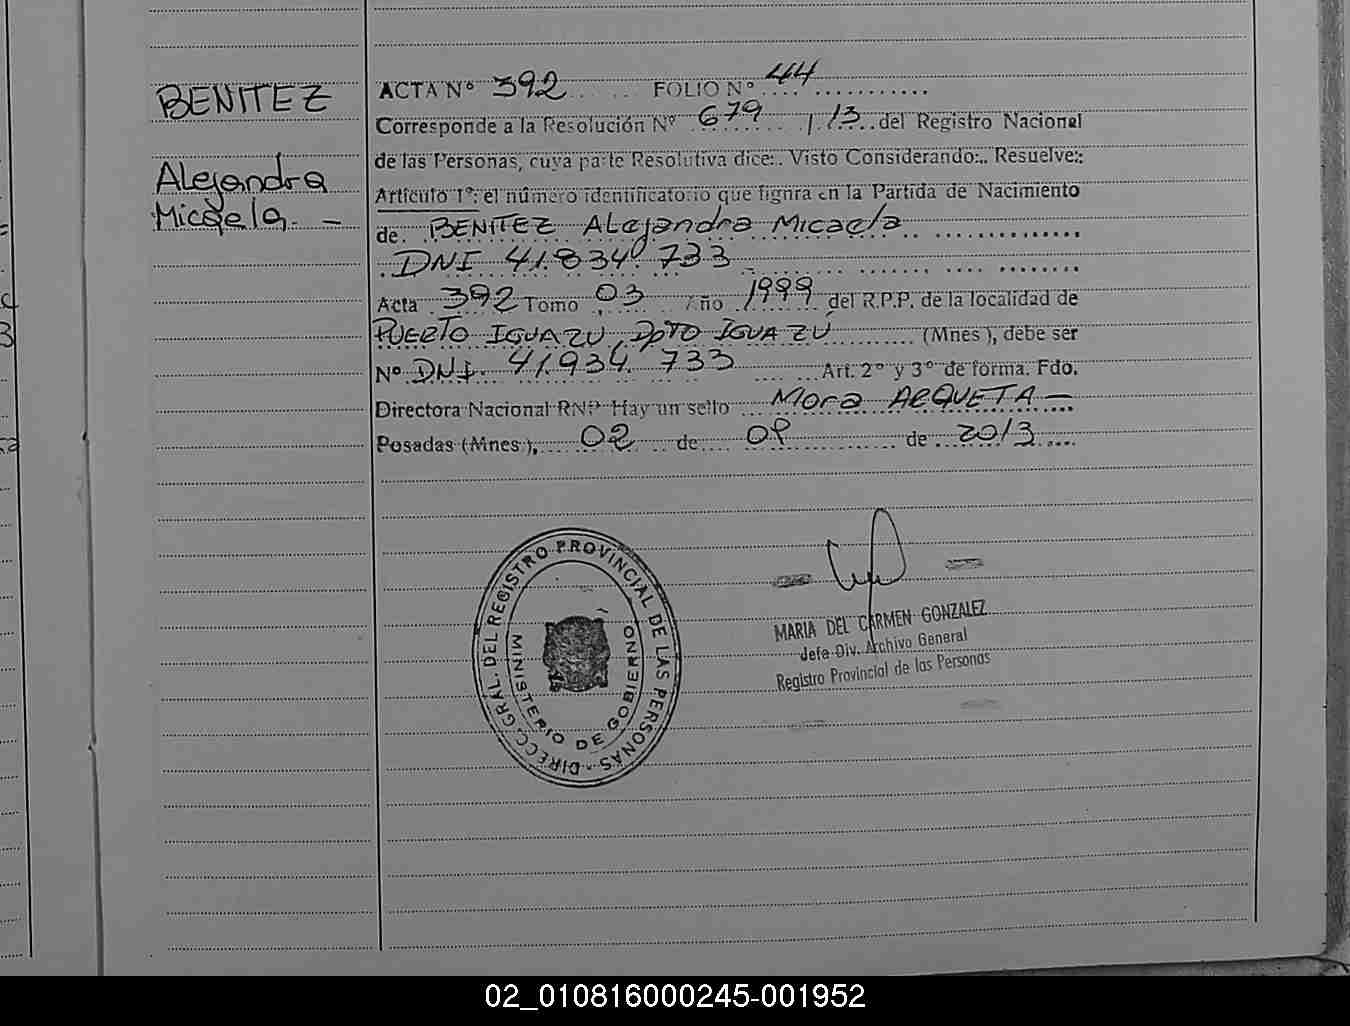 BENITEZ
Alejandra
Micaela. -
ACTA Nº 392 FOLIO Nº 44
Corresponde a la Resolución Nº 679 / 13 del Registro Nacional
de las Personas, cuya parte Resolutiva dice:. Visto Considerando:.. Resuelve:
Artículo 1º: el número identificatorio que figura en la Partida de Nacimiento
de BENITEZ Alejandra Micaela
DNI 41.834.733
Acta 392 Tomo 03 Año 1999 del R.P.P. de la localidad de
PUERTO IGUAZU, DPTO IGUAZÚ (Mnes), debe ser
Nº DNI. 41.934.733 Art. 2º y 3º de forma. Fdo.
Directora Nacional RNP Hay un sello Mora ARQUETA -
Posadas (Mnes), 02 de de 2013
DIRECC. GRAL. DEL REGISTRO PROVINCIAL DE LAS PERSONAS -
MINISTERIO DE GOBIERNO
MARIA DEL CARMEN GONZALEZ
Jefa Div. Archivo General
Registro Provincial de las Personas
02_010816000245-001952